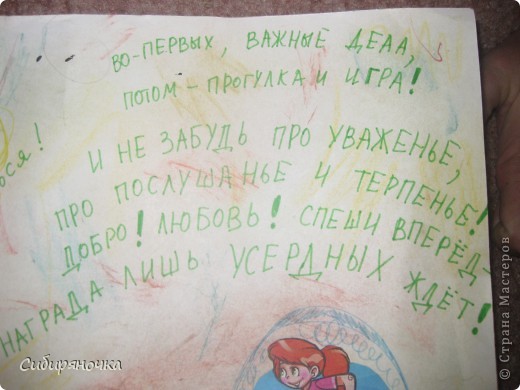 ВО-ПЕРВЫХ, ВАЖНЫЕ ДЕЛА,
ПОТОМ - ПРОГУЛКА И ИГРА!
И НЕ ЗАБУДЬ ПРО УВАЖЕНЬЕ,
ПРО ПОСЛУШАНЬЕ И ТЕРПЕНЬЕ!
ДОБРО! ЛЮБОВЬ! СПЕШИ ВПЕРЁД -
НАГРАДА ЛИШЬ УСЕРДНЫХ ЖДЁТ!
Сибиряночка
© Страна Мастеров